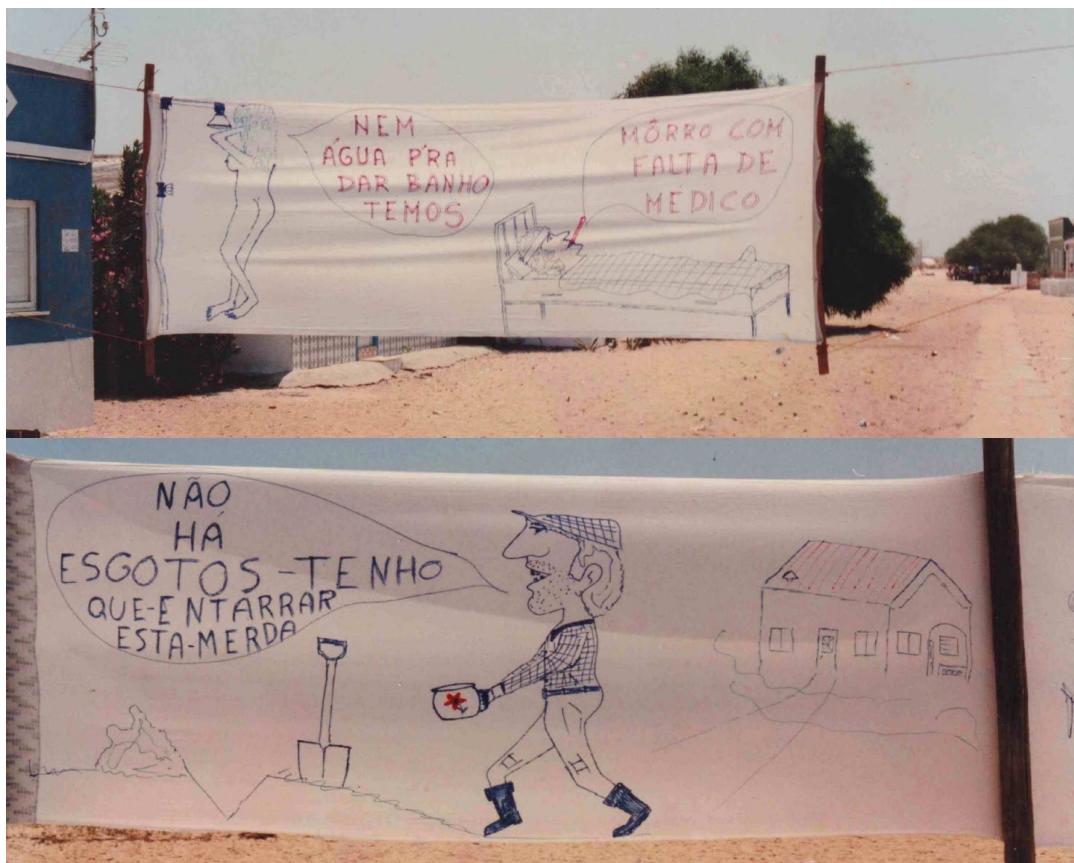 NEM
ÁGUA P'RA
DAR BANHO
TEMOS
MÔRRO COM
FALTA DE
MEDICO
NÃO
HÁ
ESGOTOS-TENHO
QUE-ENTARRAR
ESTA-MERDA